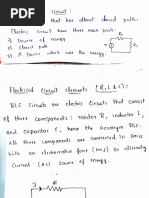 Circuit :
that has atleast closed path.
Electric circuit have three main part.
1) Source of energy.
2) closed path
3) A Device which use the energy.
V
R1
R2
Electrical Circuit elements (R, L & C):
RLC Circuits are electric Circuits that consist
of three components : resistor R, inductor L,
and capacitor C, hence the acronym RLC.
All three components are connected in series
with an electromotive force (emf) as alternating
Current (AC) source of energy.
I
R